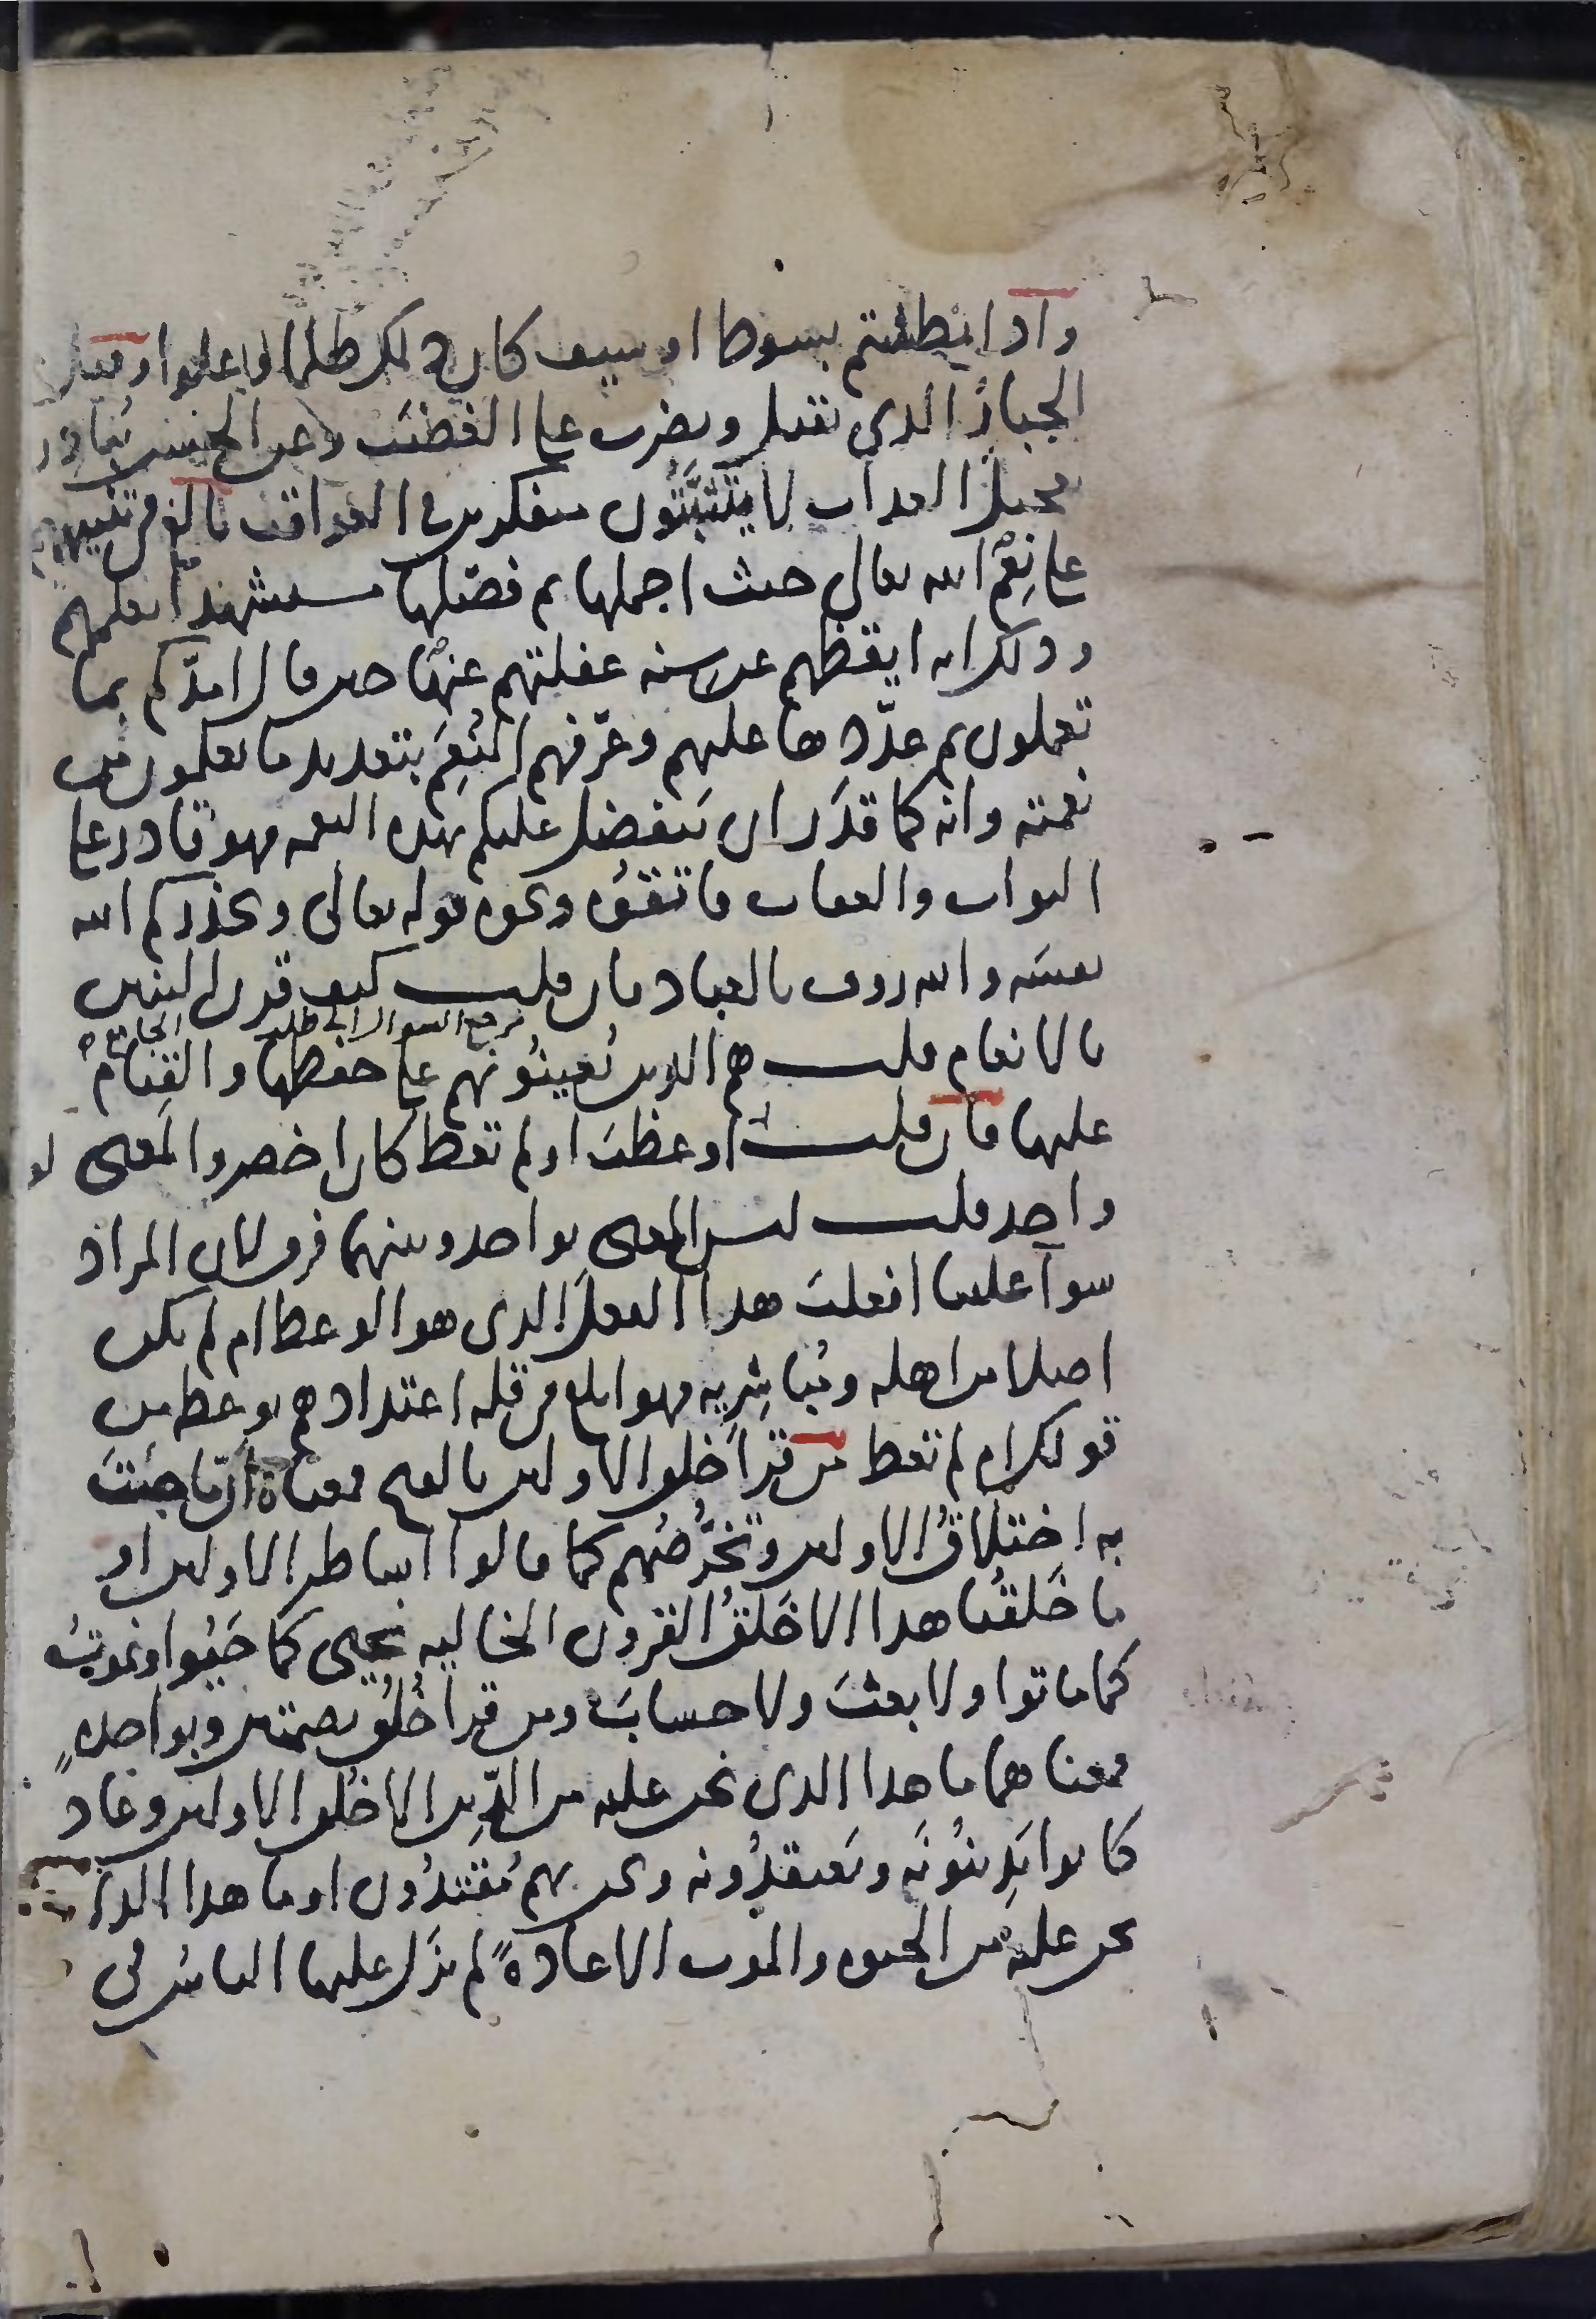 واذا بطشتم بسوط او سيف كان ذلك ظلما وعلوا وقيل
الجبار الذي يقتل ويضرب على الغضب وعن الحسن تبادرون
تعجيل العذاب لا يتثبتون متفكرين في العواقب بالغ في تنبيههم
على نعم الله تعالى حيث اجملها ثم فصلها مستشهدا بعلمهم
وذلك انه ايقظهم عن سنة غفلتهم عنها حين قال امدكم بما
تعلمون ثم عددها عليهم وعرفهم المنعم بتعديد ما يعلمون من
نعمته وانه كما قدر ان يتفضل عليكم بهذه النعمه فهو قادر على
الثواب والعقاب فاتقوه ونحوه قوله تعالى ويحذركم الله
نفسه والله رؤف بالعباد فان قلت كيف قرن البنين
مرجع السوال الى طلب الجامع
بالانعام قلت هم الذين يعينونهم على حفظها والقيام
عليها فان قلت اوعظت او لم تعظ كان اخصر والمعنى
واحد قلت ليس المعنى بواحد وبينهما فرق لان المراد
سوآ علينا افعلت هذا الفعل الذي هو الوعظ ام لم تكن
اصلا من اهله ومباشريه فهو ابلغ في قلة اعتدادهم بوعظه من
قولك ام لم تعظ من قرا خلق الاولين بالفتح فمعناه ان ما جئت
به اختلاق الاولين وتخرصهم كما قالوا اساطير الاولين او
ما خلقنا هذا الا خلق القرون الخاليه نحيى كما حيوا ونموت
كما ماتوا ولا بعث ولا حساب ومن قرا خلق بضمتين وبواحدة
فمعناهما ما هذا الذي نحن عليه من الدين الا خلق الاولين وعاد
كانوا يدينونه ويعتقدونه ونحن بهم مقتدون او ما هذا الذي
نحن عليه من الحيوة والموت الا عادة لم يزل عليها الناس في